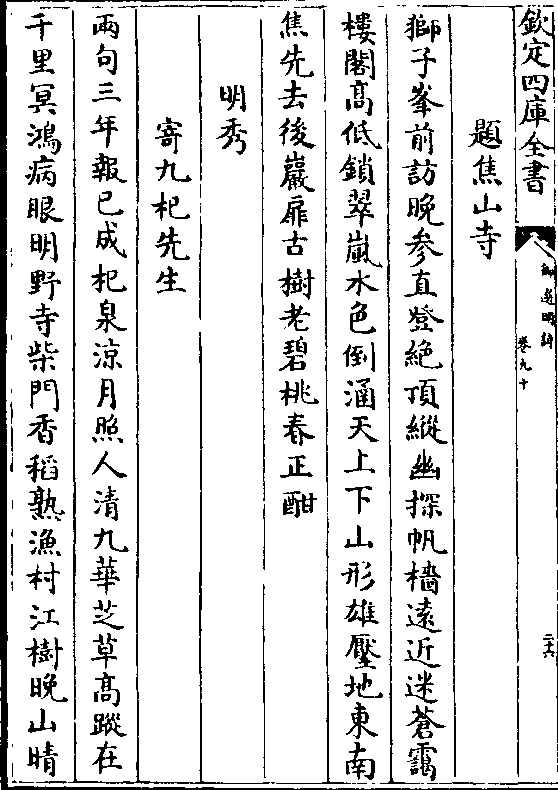 欽定四庫全書
御選明詩
卷九十
二十六
題焦山寺
獅子峯前訪晚參直登絕頂縱幽探帆檣遠近迷蒼靄
樓閣高低鎖翠嵐水色倒涵天上下山形雄壓地東南
焦先去後巖扉古樹老碧桃春正酣
明秀
寄九杞先生
兩句三年報已成杞泉涼月照人清九華芝草高蹤在
千里冥鴻病眼明野寺柴門香稻熟漁村江樹晚山晴